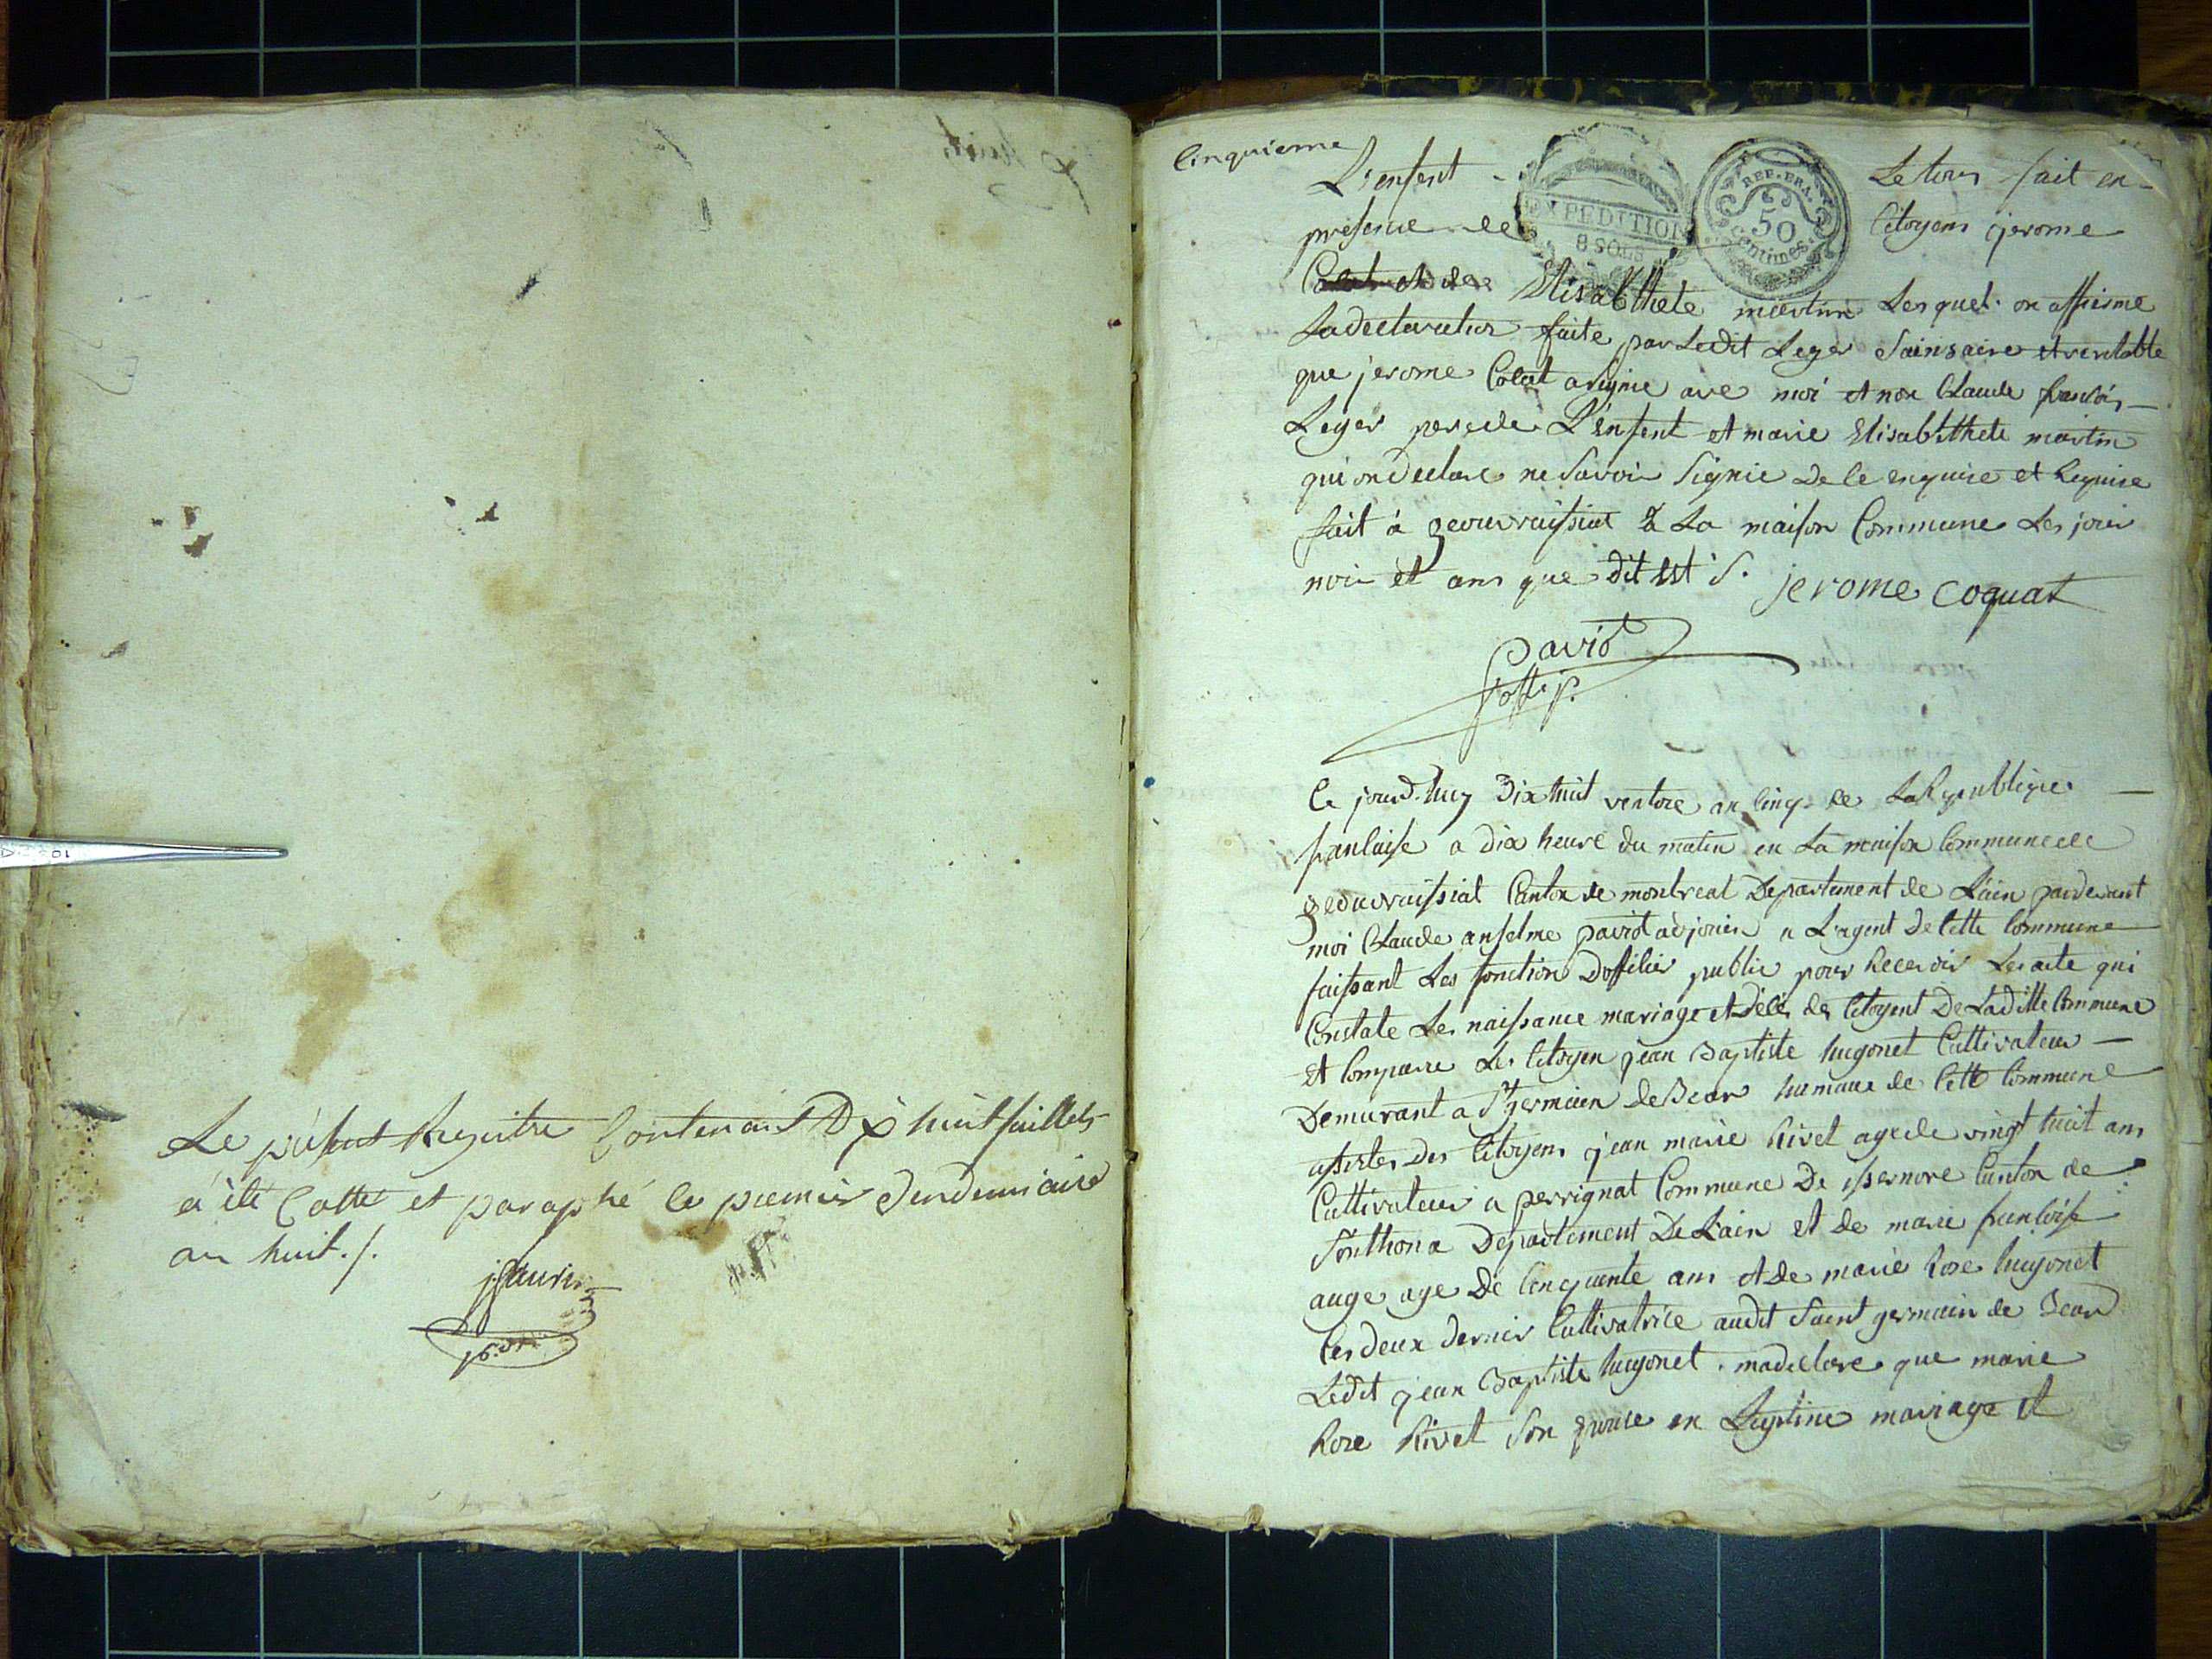 Le présent Registre Contenant Dix huit fuillets
a été Cotté et paraphé le premier Vendemiaire
an huit ./.
Cinquieme
L'enfent
Le tous fait en
presence de
Citoyens jerome
EXPEDITION
8 SOLS
REP. FRA.
50
centimes
Elisabthete martin Lesquel on affirme
La declaration faite par Ledit Leger Sainsaire et veritable
que jerome Colat a signe ave moi et non Claude francois
Leger pere de L'enfent et marie Elisabthete martin
qui on declare ne Savoir Signie de le enquire et Requise
fait à geouvraissiat à La maison Commune Les jour
moi et ans que dit Est S. jerome coquat
Paviot
off. p.
Ce jourd.huy Dix huit ventose an Cinq de La Republique
francaise a dix heure du matin en La maison Commune de
geouvraissiat Canton de montreal Departement de L'ain pardevant
moi Claude anselme paviot adjouin a L'agent de Cette Commune
faissant Les fonction Dofficier public pour Recevoir Les acte qui
Constate Les naissance mariage et Décé des Citoyent De Laditte Commune
et Compare Le Citoyen jean Baptiste hugonet Cultivateur
Demurant a St germain de Bear hamaux de Cette Commune
assister Des Citoyens jean marie Rivet age de vingt huit ans
Cultivateur a perrignat Commune De issernore Canton de
Sonthona Departement De L'ain et de marie francoise
auge age De Cinquante ans et de marie Rose hugonet
Les deux dernier Cultivatrice audit Saint germain de Bear
Ledit jean Baptiste hugonet madeclare que marie
Rose Rivet Son epouse en Legitime mariage et